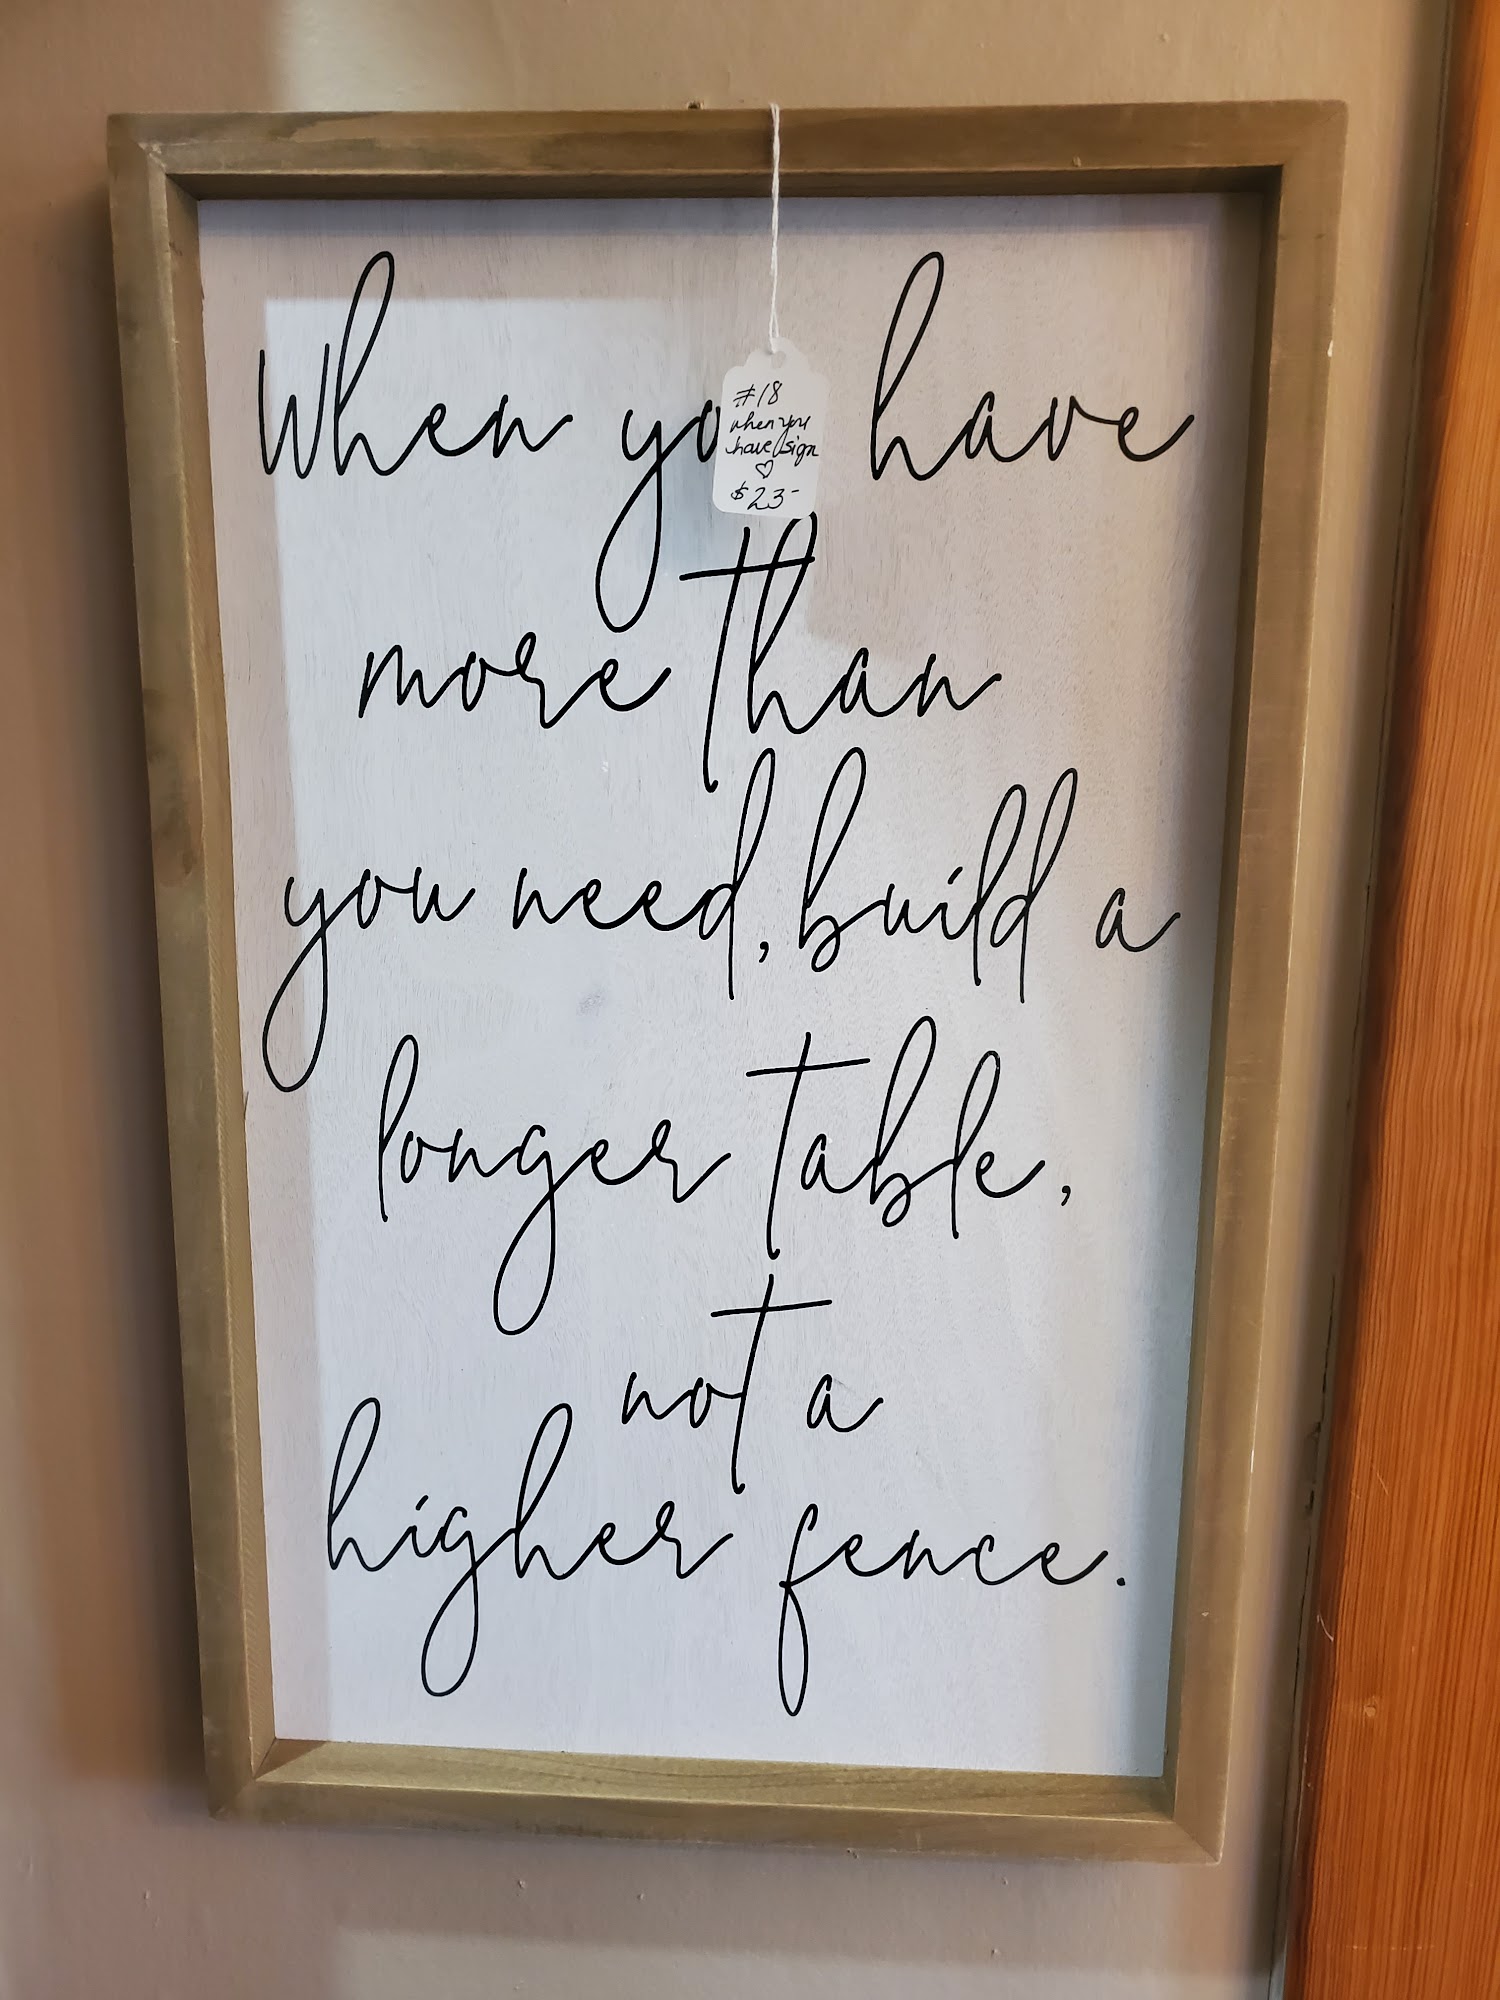 When you have
more than
you need, build a
longer table,
not a
higher fence.
#18
when you
have sign
♡
$23-